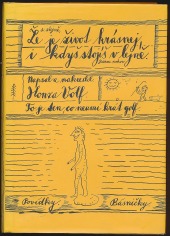 Že je život krásnej,
i když stojíš v lejně.
Napsal a nakreslil
Honza Volf
To je ten, co neumí hrát golf
Povídky Básničky